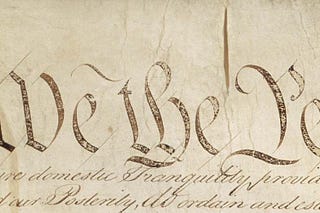 We the Pe
ure domestic Tranquility, provid
d our Posterity, do ordain and est